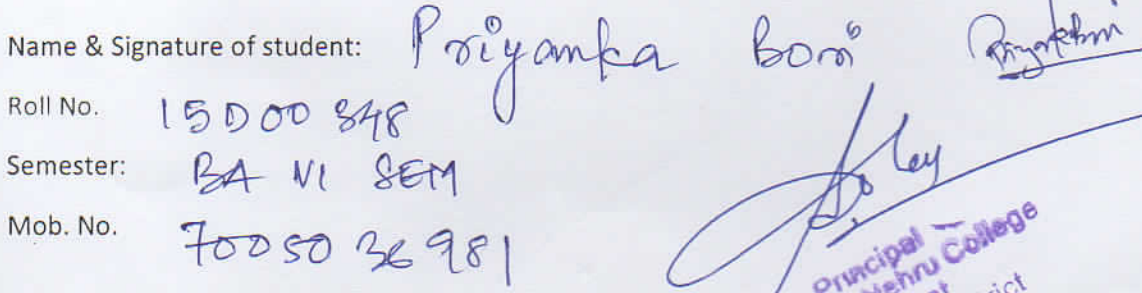 Name & Signature of student: Priyanka Bori
Roll No. 15D00 848
Semester: BA VI SEM
Mob. No. 70050 36981
Principal
Nehru College